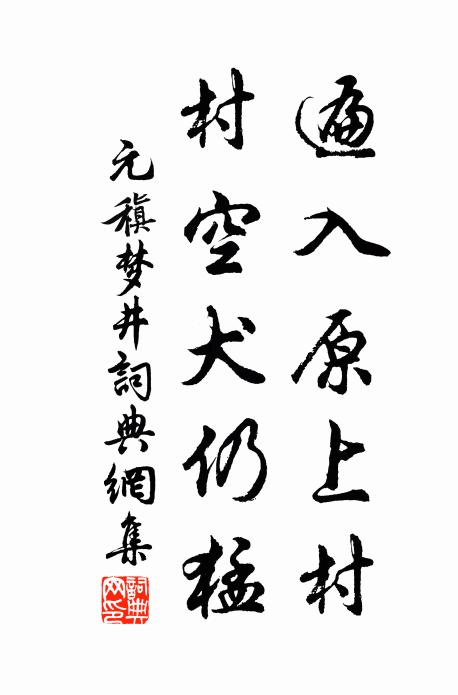 遍入原上村
村空犬仍猛
元稹梦井詞典網集
詞典网印